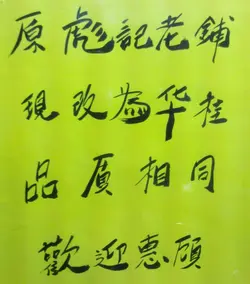 原彪記老鋪
現改為华桂
品质相同
歡迎惠顾